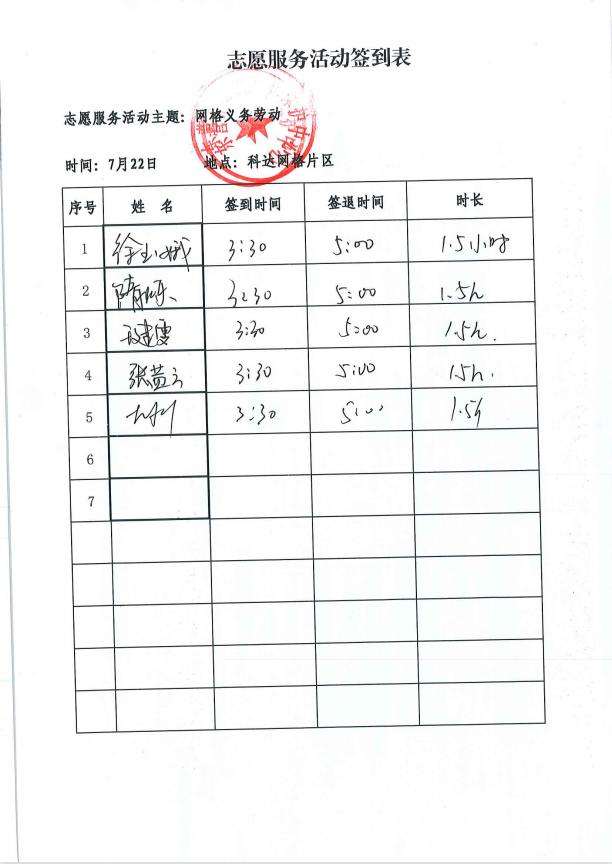 志愿服务活动签到表
志愿服务活动主题：网格义务劳动
时间：7月22日 地点：科达网格片区
序号 姓 名 签到时间 签退时间 时长
1 3:30 5:00 1.5小时
2 3:30 5:00 1.5h
3 3:30 5:00 1.5h.
4 张 3:30 5:00 1.5h.
5 3:30 5:00 1.5h
6
7